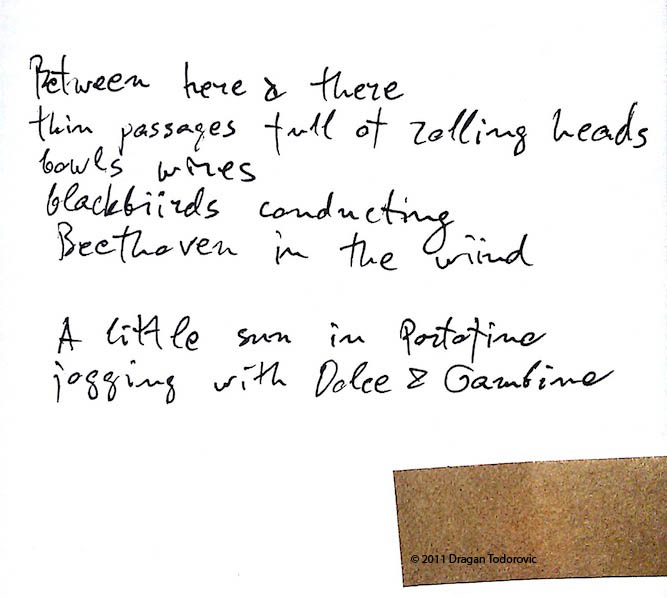 Between here & there
thin passages full of rolling heads
bowls wires
blackbiirds conducting
Beethoven in the wiind
A little sun in Portofino
jogging with Dolce & Gambino
© 2011 Dragan Todorovic